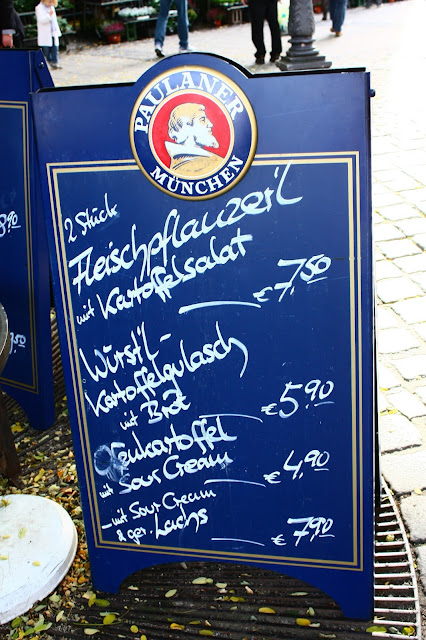 PAULANER
MÜNCHEN
2 Stück
Fleischpflanzerl
mit Kartoffelsalat
€ 7,50
Würstl-
Kartoffelgulasch
mit Brot
€ 5,90
Ofenkartoffel
mit Sour Cream
€ 4,90
- mit Sour Cream
& ger. Lachs
€ 7,90
8,90
7,50